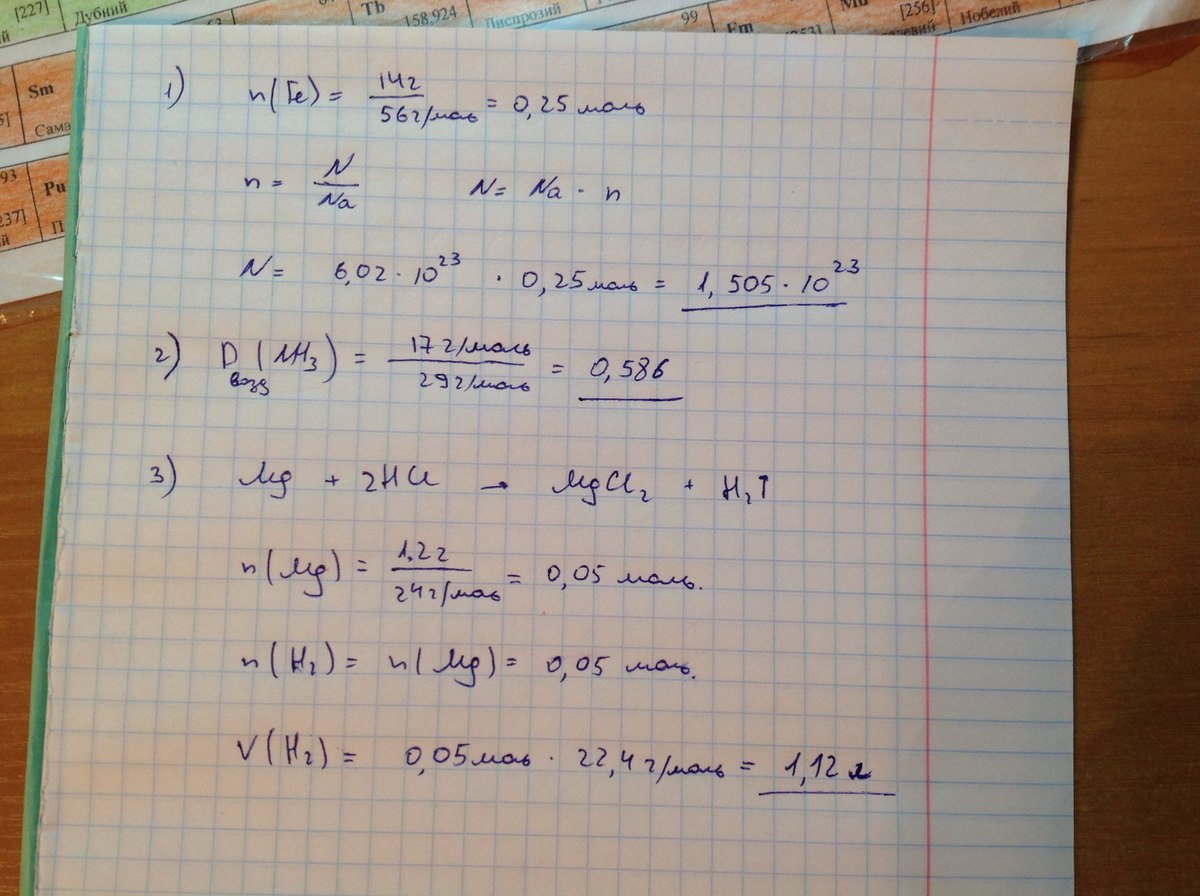 [227]
Дубний
Tb
158.924
Диспрозий
99
Fm
[256]
Нобелий
Sm
Сама
93
Pu
237]
П
1) n(Fe) = 14г / 56г/моль = 0,25 моль
n = N / Na N = Na · n
N = 6,02 · 10^23 · 0,25 моль = 1,505 · 10^23
2) D возд (NH3) = 17 г/моль / 29 г/моль = 0,586
3) Mg + 2HCl → MgCl2 + H2↑
n(Mg) = 1,2г / 24г/моль = 0,05 моль.
n(H2) = n(Mg) = 0,05 моль.
V(H2) = 0,05 моль · 22,4 г/моль = 1,12 л